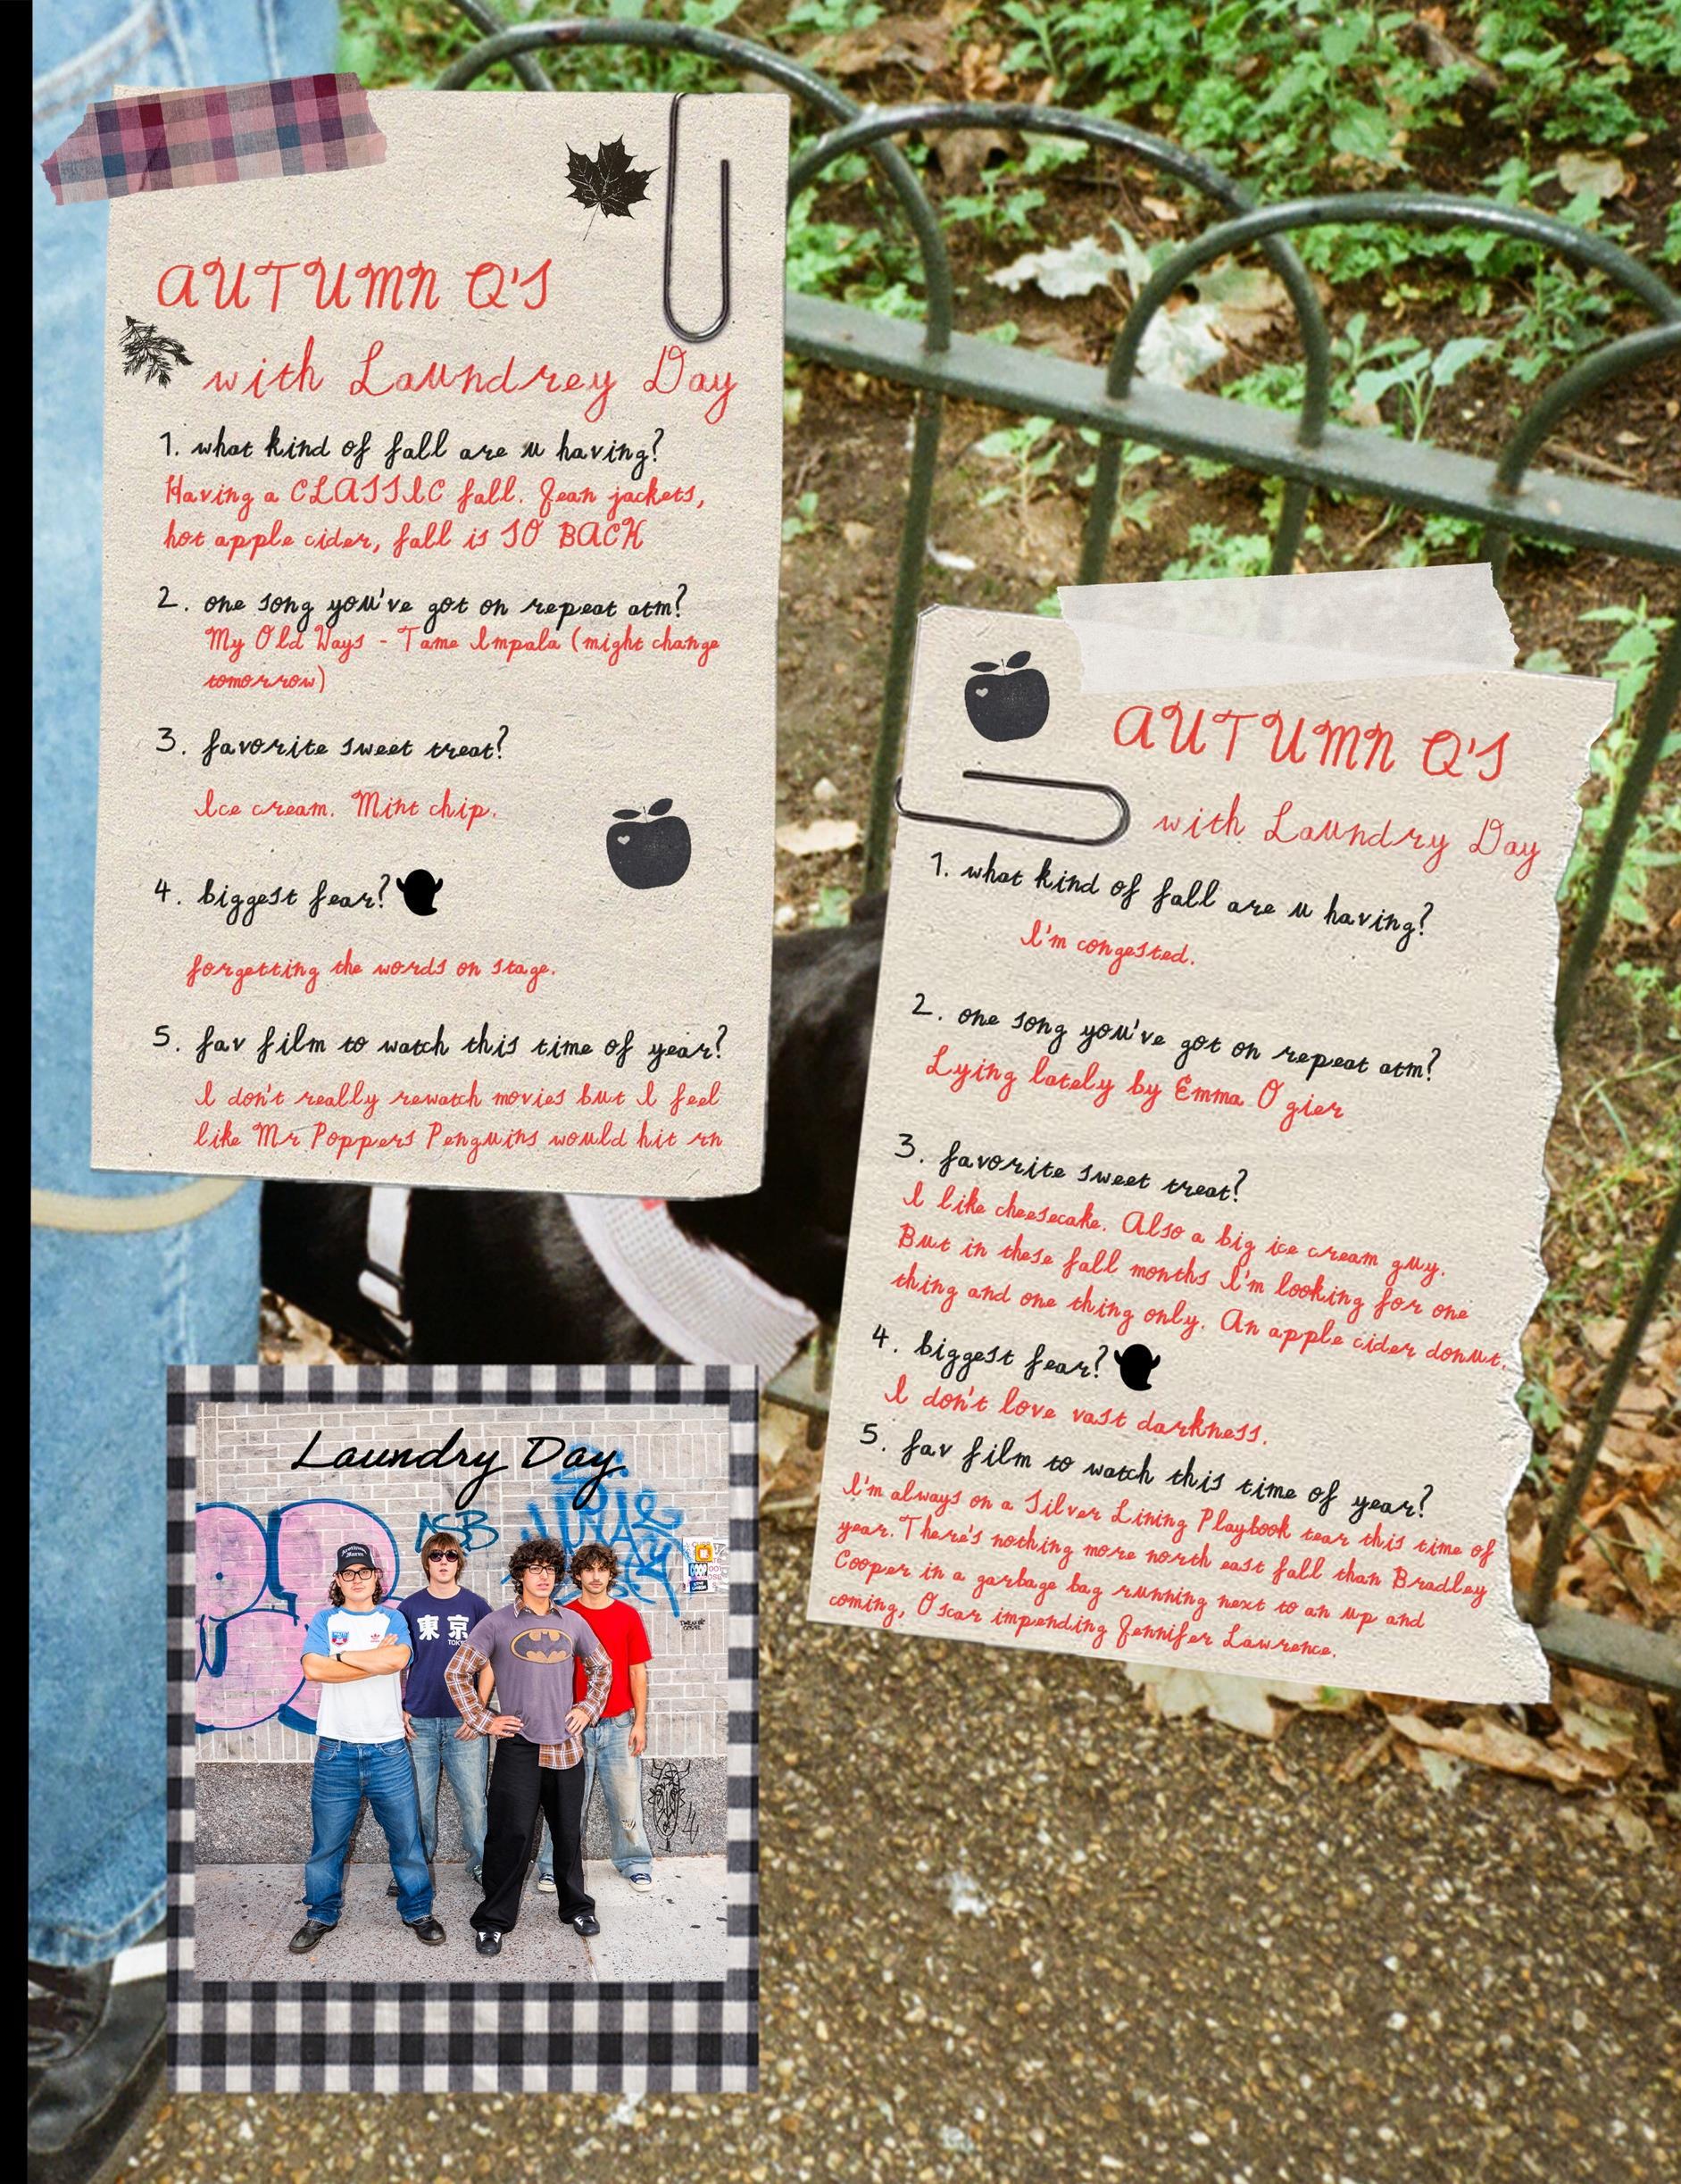 AUTUMN Q'S
with Laundrey Day
1. what kind of fall are u having?
Having a CLASSIC fall. Jean jackets,
hot apple cider, fall is SO BACK
2. one song you've got on repeat atm?
My Old Ways - Tame Impala (might change
tomorrow)
3. favorite sweet treat?
Ice cream. Mint chip.
4. biggest fear?
forgetting the words on stage.
5. fav film to watch this time of year?
I don't really rewatch movies but I feel
like Mr Poppers Penguins would hit rn
AUTUMN Q'S
with Laundry Day
1. what kind of fall are u having?
I'm congested.
2. one song you've got on repeat atm?
Lying lately by Emma Ogier
3. favorite sweet treat?
I like cheesecake. Also a big ice cream guy.
But in these fall months I'm looking for one
thing and one thing only. An apple cider donut.
4. biggest fear?
I don't love vast darkness.
5. fav film to watch this time of year?
I'm always on a Silver Lining Playbook tear this time of
year. There's nothing more north east fall than Bradley
Cooper in a garbage bag running next to an up and
coming, Oscar impending Jennifer Lawrence.
Laundry Day
ASB
東京